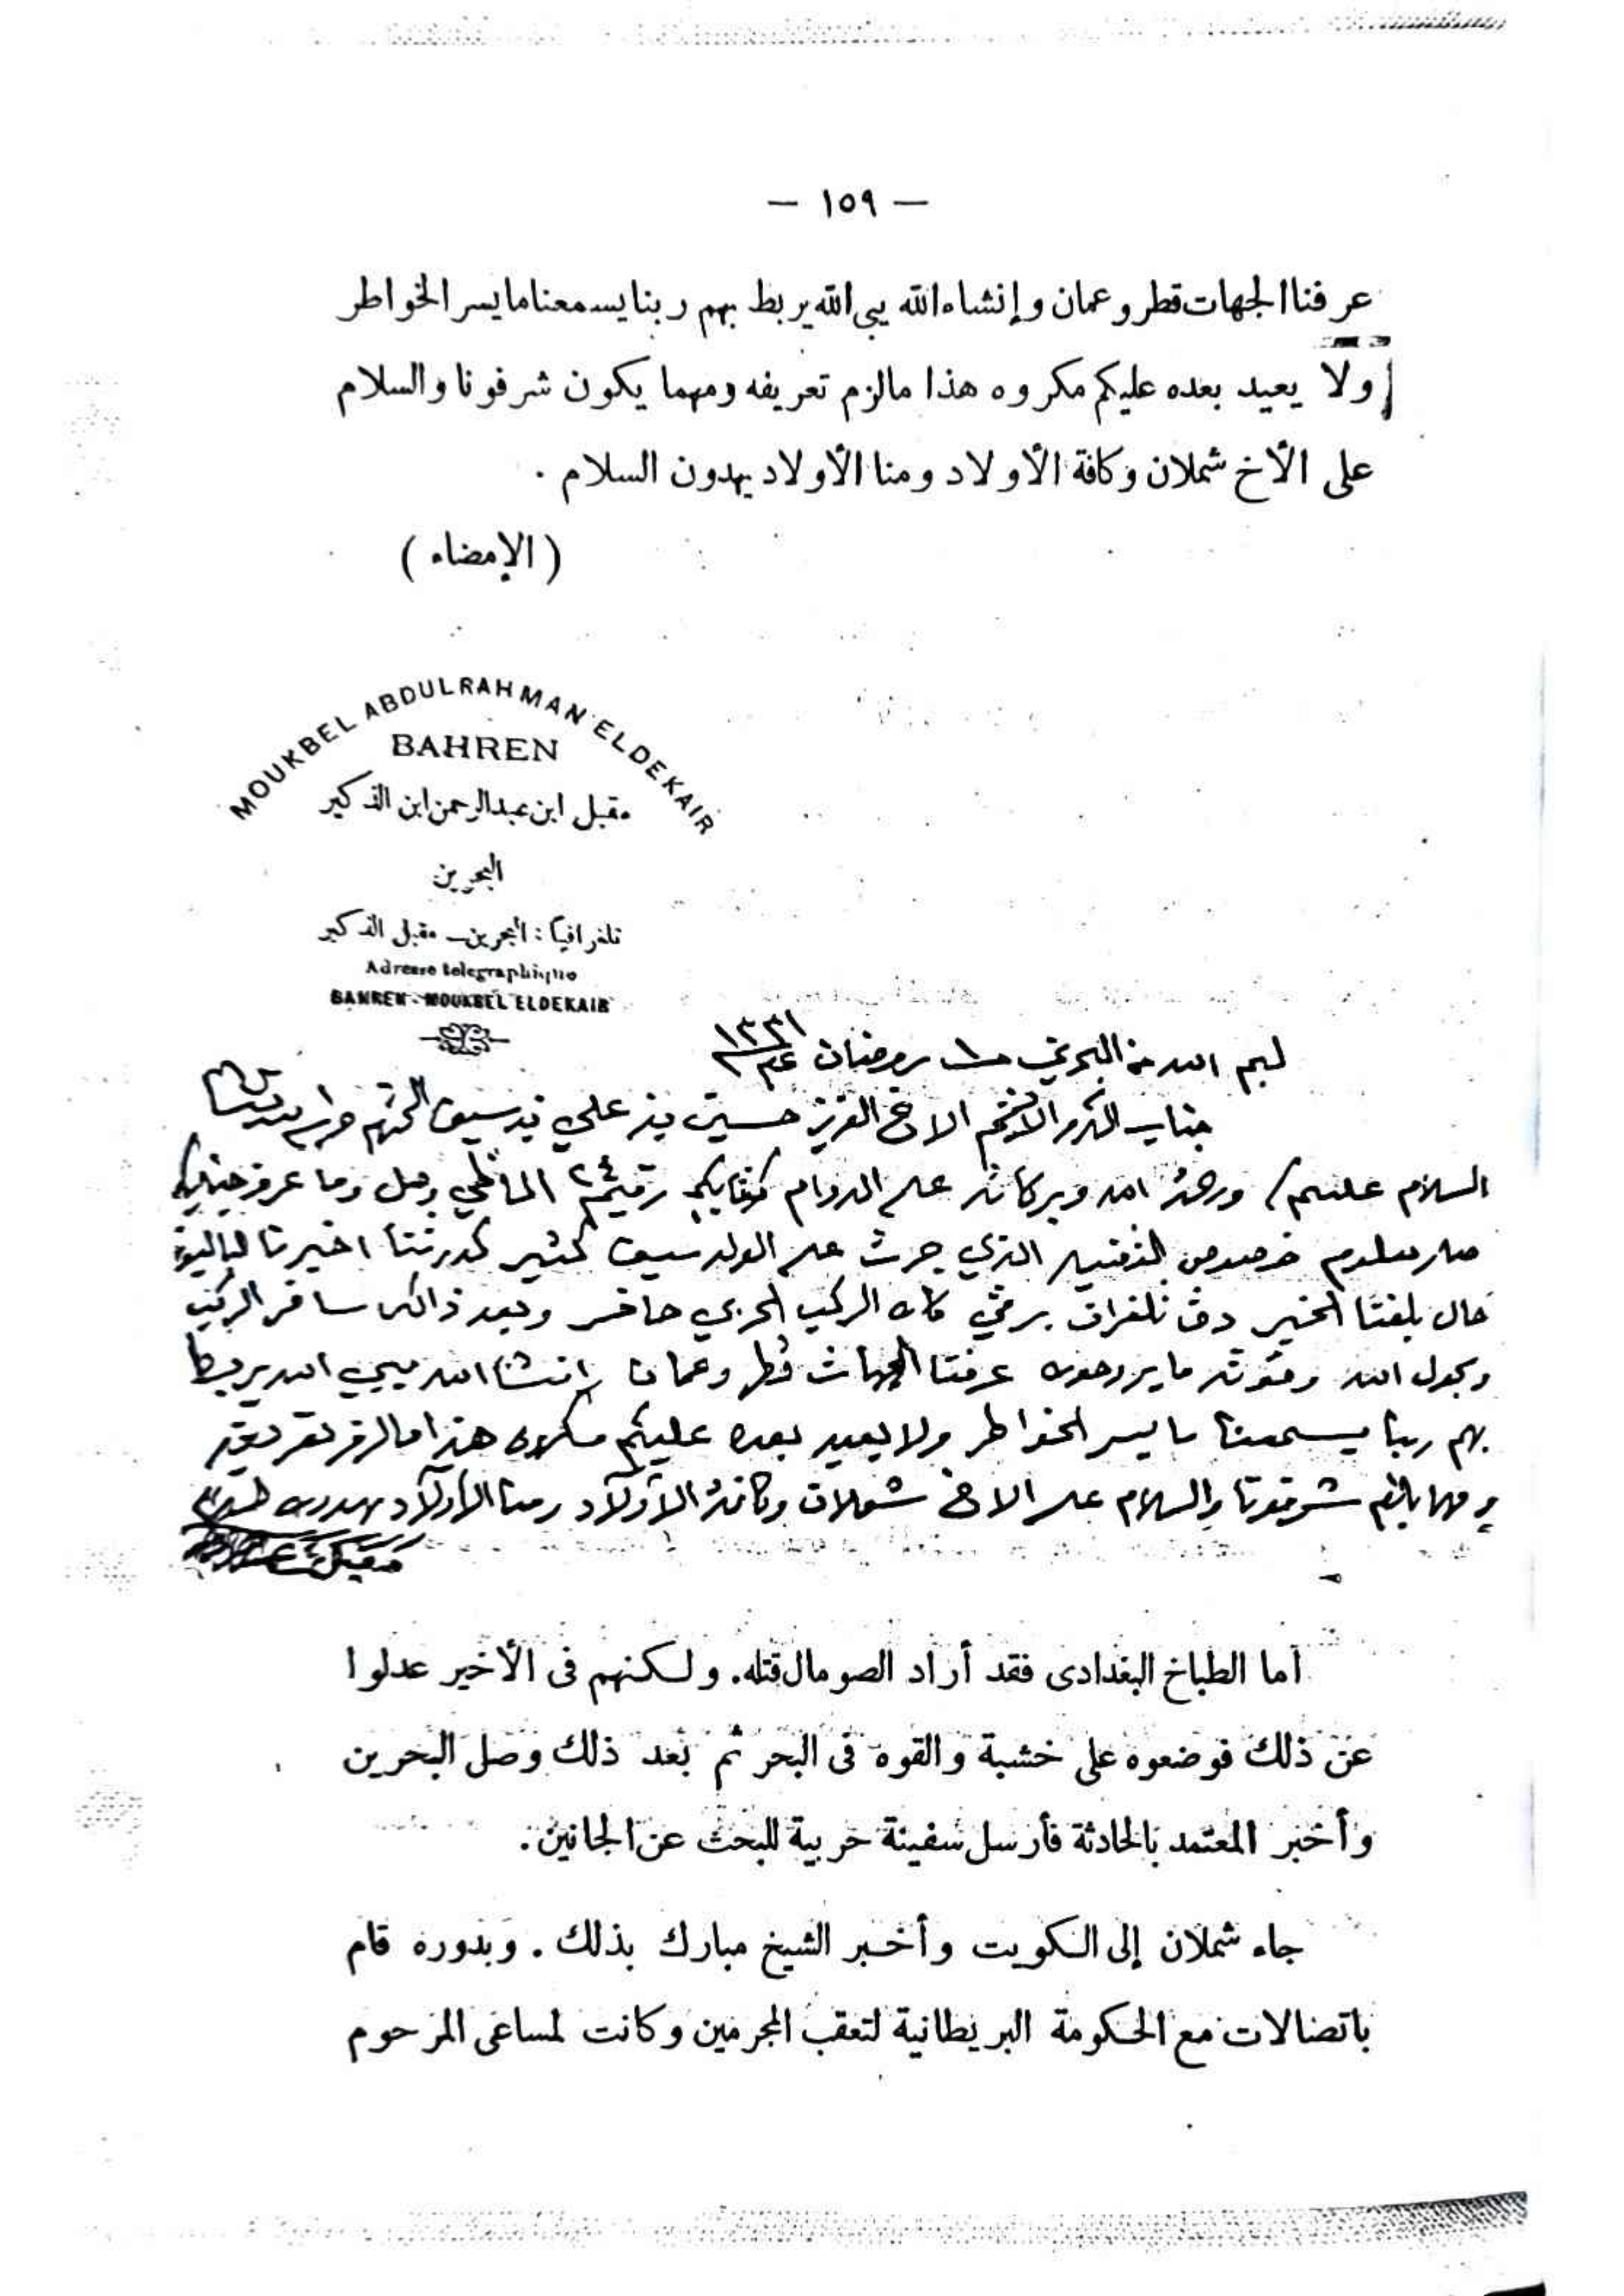 — ١٥٩ —
عرفنا الجهات قطر وعمان وإنشاء الله يبى الله يربط بهم ربنا يسمعنا ما يسر الخواطر
ولا يعيد بعده عليكم مكروه هذا مالزم تعريفه ومهما يكون شرفونا والسلام
على الأخ شملان وكافة الأولاد ومنا الأولاد يهدون السلام .
( الإمضاء )
MOUKBEL ABDULRAHMAN ELDEKAIR
BAHREN
مقبل ابن عبدالرحمن ابن الذكير
البحرين
تلغرافيًا : البحرين — مقبل الذكير
Adresse telegraphique
BAHREN - MOUKBEL ELDEKAIR
بسم الله من البحرين رمضان ١٣٣١
جناب الاخ العزيز حسين بن علي بن سيف المحترم
السلام عليكم ورحمة الله وبركاته على الدوام كتابكم رقيم ٢٤ الماضي وصل وما عرف جنابكم
صار معلوم خصوص القضيه الذي جرت على الولد سيف كثير كدرتنا اخيرنا
حال بلغنا الخبر تلغراف كان المركب الحربي حاضر وبعد ذالك سافر المركب
وبحول الله وقوته ما يروحون عرفنا الجهات قطر وعمان وانشا الله يبي الله يربط
بهم ربنا يسمعنا ما يسر الخواطر ولا يعيد بعده عليكم مكروه هذا مالزم تعريفه
ومهما يلزم شرفونا والسلام على الاخ شملان وكافة الأولاد ومنا الأولاد يهدون السلام
أما الطباخ البغدادى فقد أراد الصومال قتله. ولكنهم فى الأخير عدلوا
عن ذلك فوضعوه على خشبة والقوه فى البحر ثم بعد ذلك وصل البحرين
وأخبر المعتمد بالحادثة فأرسل سفينة حربية للبحث عن الجانين .
جاء شملان إلى الكويت وأخبر الشيخ مبارك بذلك . وبدوره قام
باتصالات مع الحكومة البريطانية لتعقب المجرمين وكانت لمساعى المرحوم